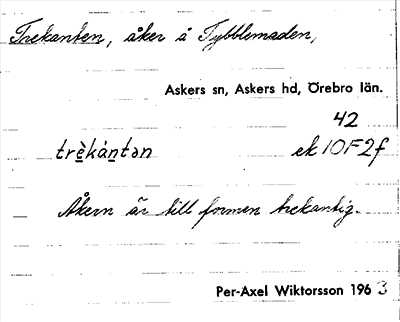 Trekanten, åker å Tybblemaden,
Askers sn, Askers hd, Örebro län.
42
trèkán̲tən ek 10F2f
Åkern är till formen trekantig.
Per-Axel Wiktorsson 1963